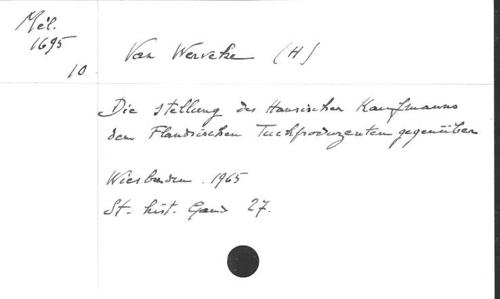 Mél.
1695
10
Van Werveke (H)
Die stellung des Hansischen Kaufmanns
dem Flandrischen Tuchproduzenten gegenüber
Wiesbaden. 1965
St. hist. Gand 27.